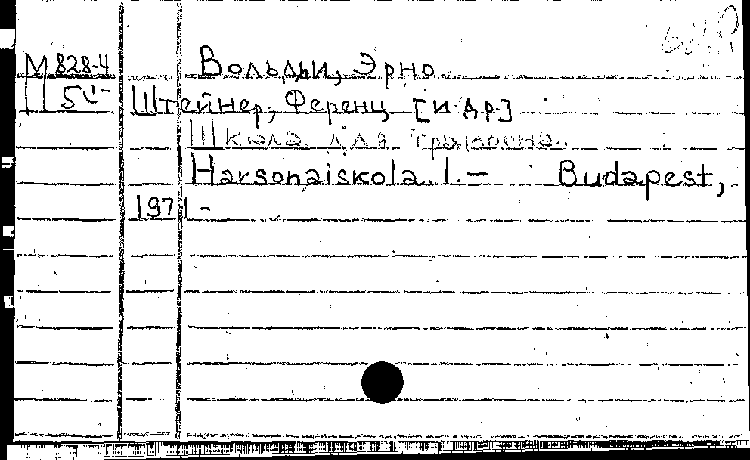 М 828-4 Вольди, Эрно
Штейнер, Ференц [и др]
Школа для тромбона.
Harsonaiskola. 1. — Budapest,
1971 -